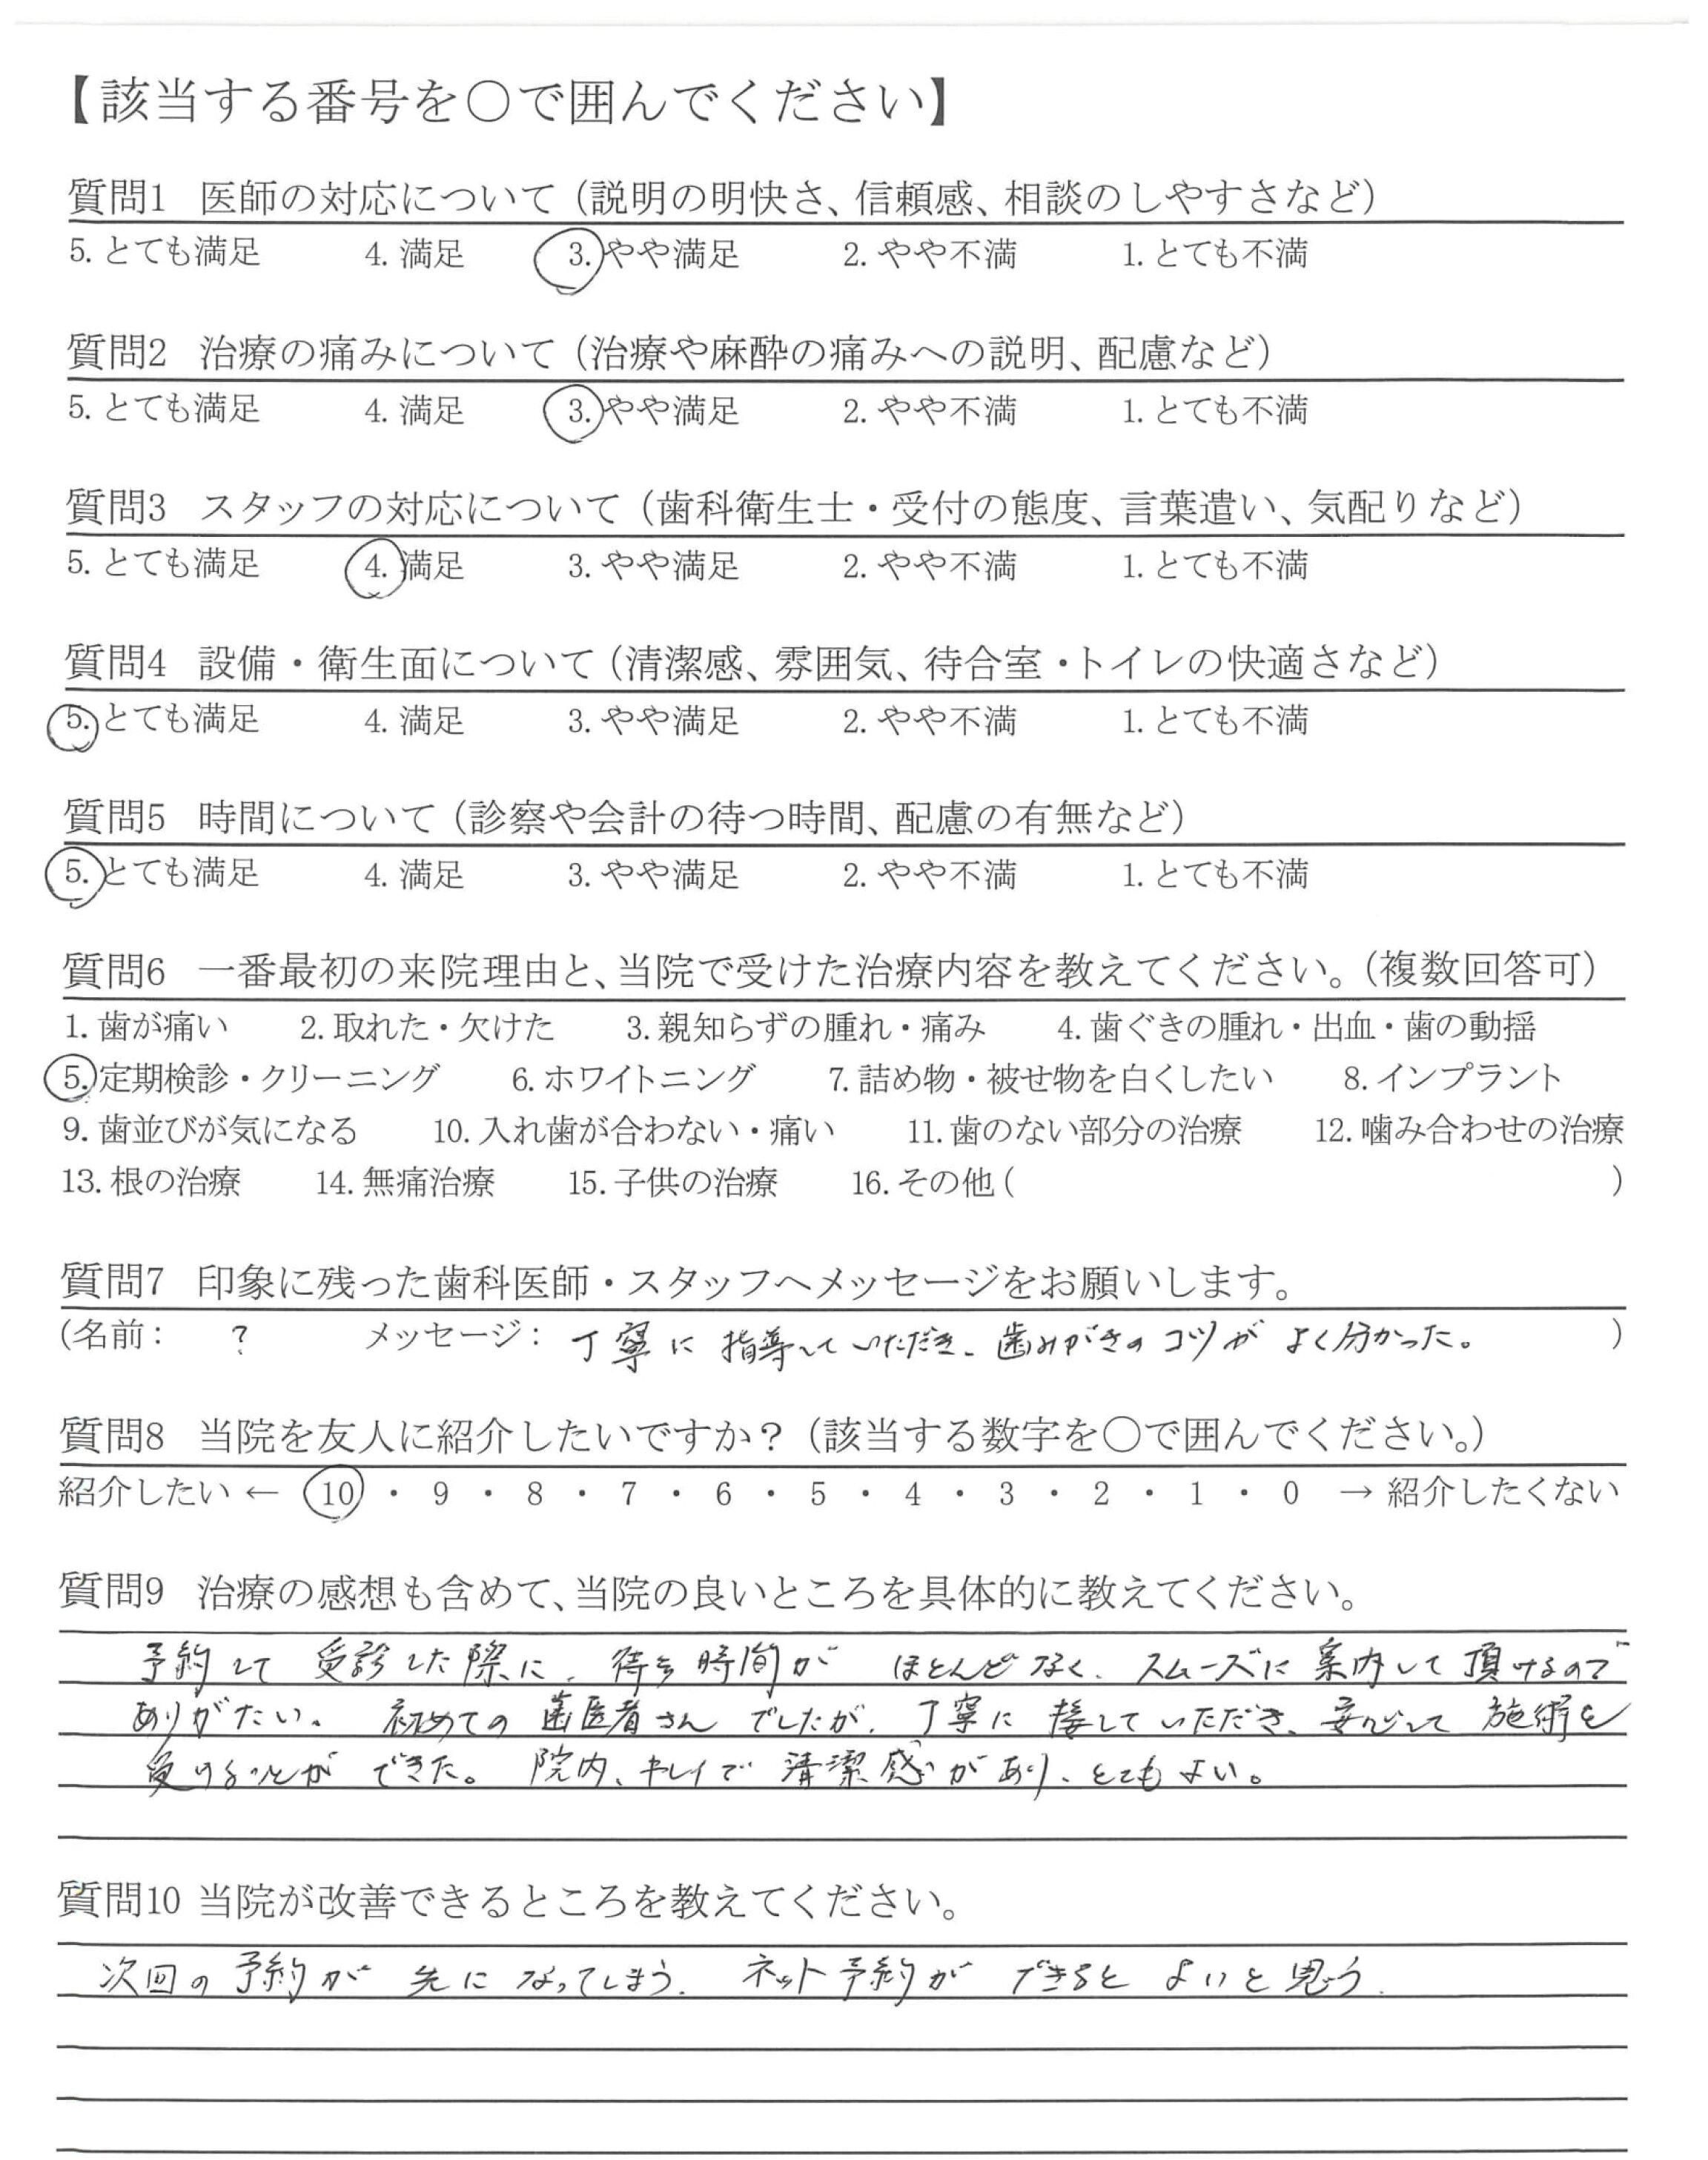 【該当する番号を○で囲んでください】
質問1 医師の対応について（説明の明快さ、信頼感、相談のしやすさなど）
5. とても満足 4. 満足 3. やや満足 2. やや不満 1. とても不満
質問2 治療の痛みについて（治療や麻酔の痛みへの説明、配慮など）
5. とても満足 4. 満足 3. やや満足 2. やや不満 1. とても不満
質問3 スタッフの対応について（歯科衛生士・受付の態度、言葉遣い、気配りなど）
5. とても満足 4. 満足 3. やや満足 2. やや不満 1. とても不満
質問4 設備・衛生面について（清潔感、雰囲気、待合室・トイレの快適さなど）
5. とても満足 4. 満足 3. やや満足 2. やや不満 1. とても不満
質問5 時間について（診察や会計の待つ時間、配慮の有無など）
5. とても満足 4. 満足 3. やや満足 2. やや不満 1. とても不満
質問6 一番最初の来院理由と、当院で受けた治療内容を教えてください。（複数回答可）
1. 歯が痛い 2. 取れた・欠けた 3. 親知らずの腫れ・痛み 4. 歯ぐきの腫れ・出血・歯の動揺
5. 定期検診・クリーニング 6. ホワイトニング 7. 詰め物・被せ物を白くしたい 8. インプラント
9. 歯並びが気になる 10. 入れ歯が合わない・痛い 11. 歯のない部分の治療 12. 噛み合わせの治療
13. 根の治療 14. 無痛治療 15. 子供の治療 16. その他（ ）
質問7 印象に残った歯科医師・スタッフへメッセージをお願いします。
（名前： ? メッセージ： 丁寧に指導していただき、歯みがきのコツがよく分かった。 ）
質問8 当院を友人に紹介したいですか？（該当する数字を○で囲んでください。）
紹介したい ← 10 ・ 9 ・ 8 ・ 7 ・ 6 ・ 5 ・ 4 ・ 3 ・ 2 ・ 1 ・ 0 → 紹介したくない
質問9 治療の感想も含めて、当院の良いところを具体的に教えてください。
予約して受診した際に、待ち時間がほとんどなく、スムーズに案内して頂けるので
ありがたい。初めての歯医者さんでしたが、丁寧に接していただき、安心して施術を
受けることができた。院内、キレイで清潔感があり、とてもよい。
質問10 当院が改善できるところを教えてください。
次回の予約が先になってしまう。ネット予約ができるとよいと思う。